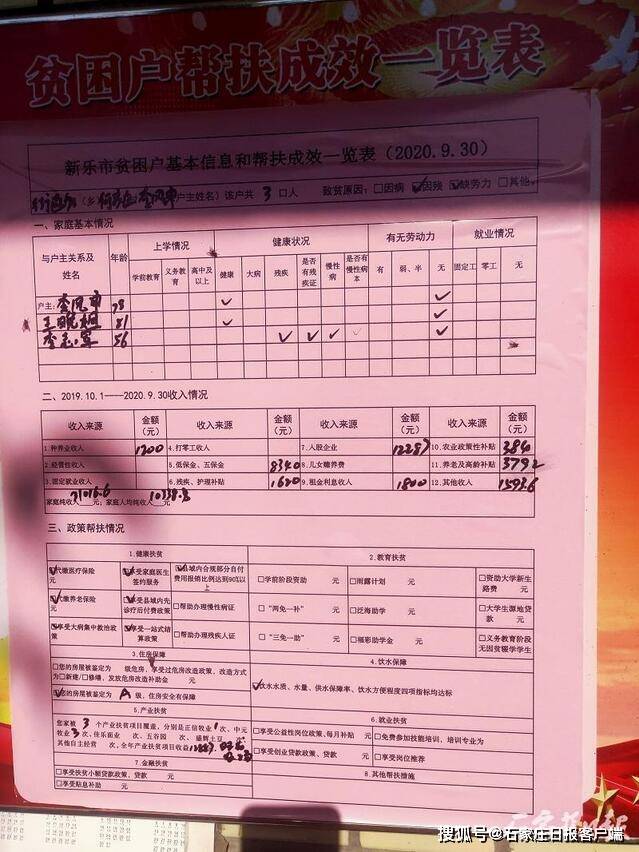 贫困户帮扶成效一览表
新乐市贫困户基本信息和帮扶成效一览表（2020.9.30）
（乡 户主姓名）该户共 3 口人 致贫原因：□因病 ☑因残 ☑缺劳力 □其他
一、家庭基本情况
与户主关系及姓名 年龄 上学情况 健康状况 有无劳动力 就业情况
学前教育 义务教育 高中及以上 健康 大病 残疾 是否有残疾证 慢性病 是否有慢性病本 有 弱、半 无 固定工 零工 无
户主: 李凤申 78 ✓ ✓
王眼 81 ✓ ✓
李志军 56 ✓ ✓ ✓ ✓ ✓
二、2019.10.1----2020.9.30收入情况
收入来源 金额（元） 收入来源 金额（元） 收入来源 金额（元） 收入来源 金额（元）
1.种养业收入 1200 4.打零工收入 7.入股企业 12287 10.农业政策性补贴 384
2.经营性收入 5.低保金、五保金 8340 8.儿女赡养费 11.养老及高龄补贴 3792
3.固定就业收入 6.残疾、护理补贴 1620 9.租金利息收入 1800 12.其他收入 1593.6
家庭纯收入 31016.6 元，家庭人均纯收入 10338.8
三、政策帮扶情况
1.健康扶贫 2.教育扶贫
☑代缴医疗保险 元 ☑享受家庭医生签约服务 ☑县域内合规部分自付费用报销比例达到90%以上 □学前阶段资助 元 □雨露计划 元 □资助大学新生路费 元
☑代缴养老保险 元 ☑享受县域内先诊疗后付费政策 □帮助办理慢性病证 □“两免一补” 元 □泛海助学 元 □大学生源地贷款 元
☑享受大病集中救治政策 ☑享受一站式结算政策 □帮助办理残疾人证 □“三免一助” 元 □福彩助学金 元 □义务教育阶段无因贫辍学学生
3.住房保障 4.饮水保障
□您的房屋被鉴定为 级危房，享受过危房改造政策，改造方式为□新建/□修缮，发放危房改造补助金 元
☑您的房屋被鉴定为 A 级，住房安全有保障
☑饮水水质、水量、供水保障率、饮水方便程度四项指标均达标
5.产业扶贫 6.就业扶贫
您家被 3 个产业扶贫项目覆盖，分别是正信牧业 1 次、中元
牧业 3 次、佳乐面业 次、五谷园 次、盛辉土豆 次、
其他自主经营 次，全年产业扶贫项目收益 12287
□享受公益性岗位政策，每月补贴 元 □免费参加技能培训，培训专业为
□享受创业贷款政策、贷款 元 □享受岗位推荐
7.金融扶贫 8.其他帮扶措施
□享受扶贫小额贷款政策，贷款 元
□享受贴息补助 元
搜狐号@石家庄日报客户端